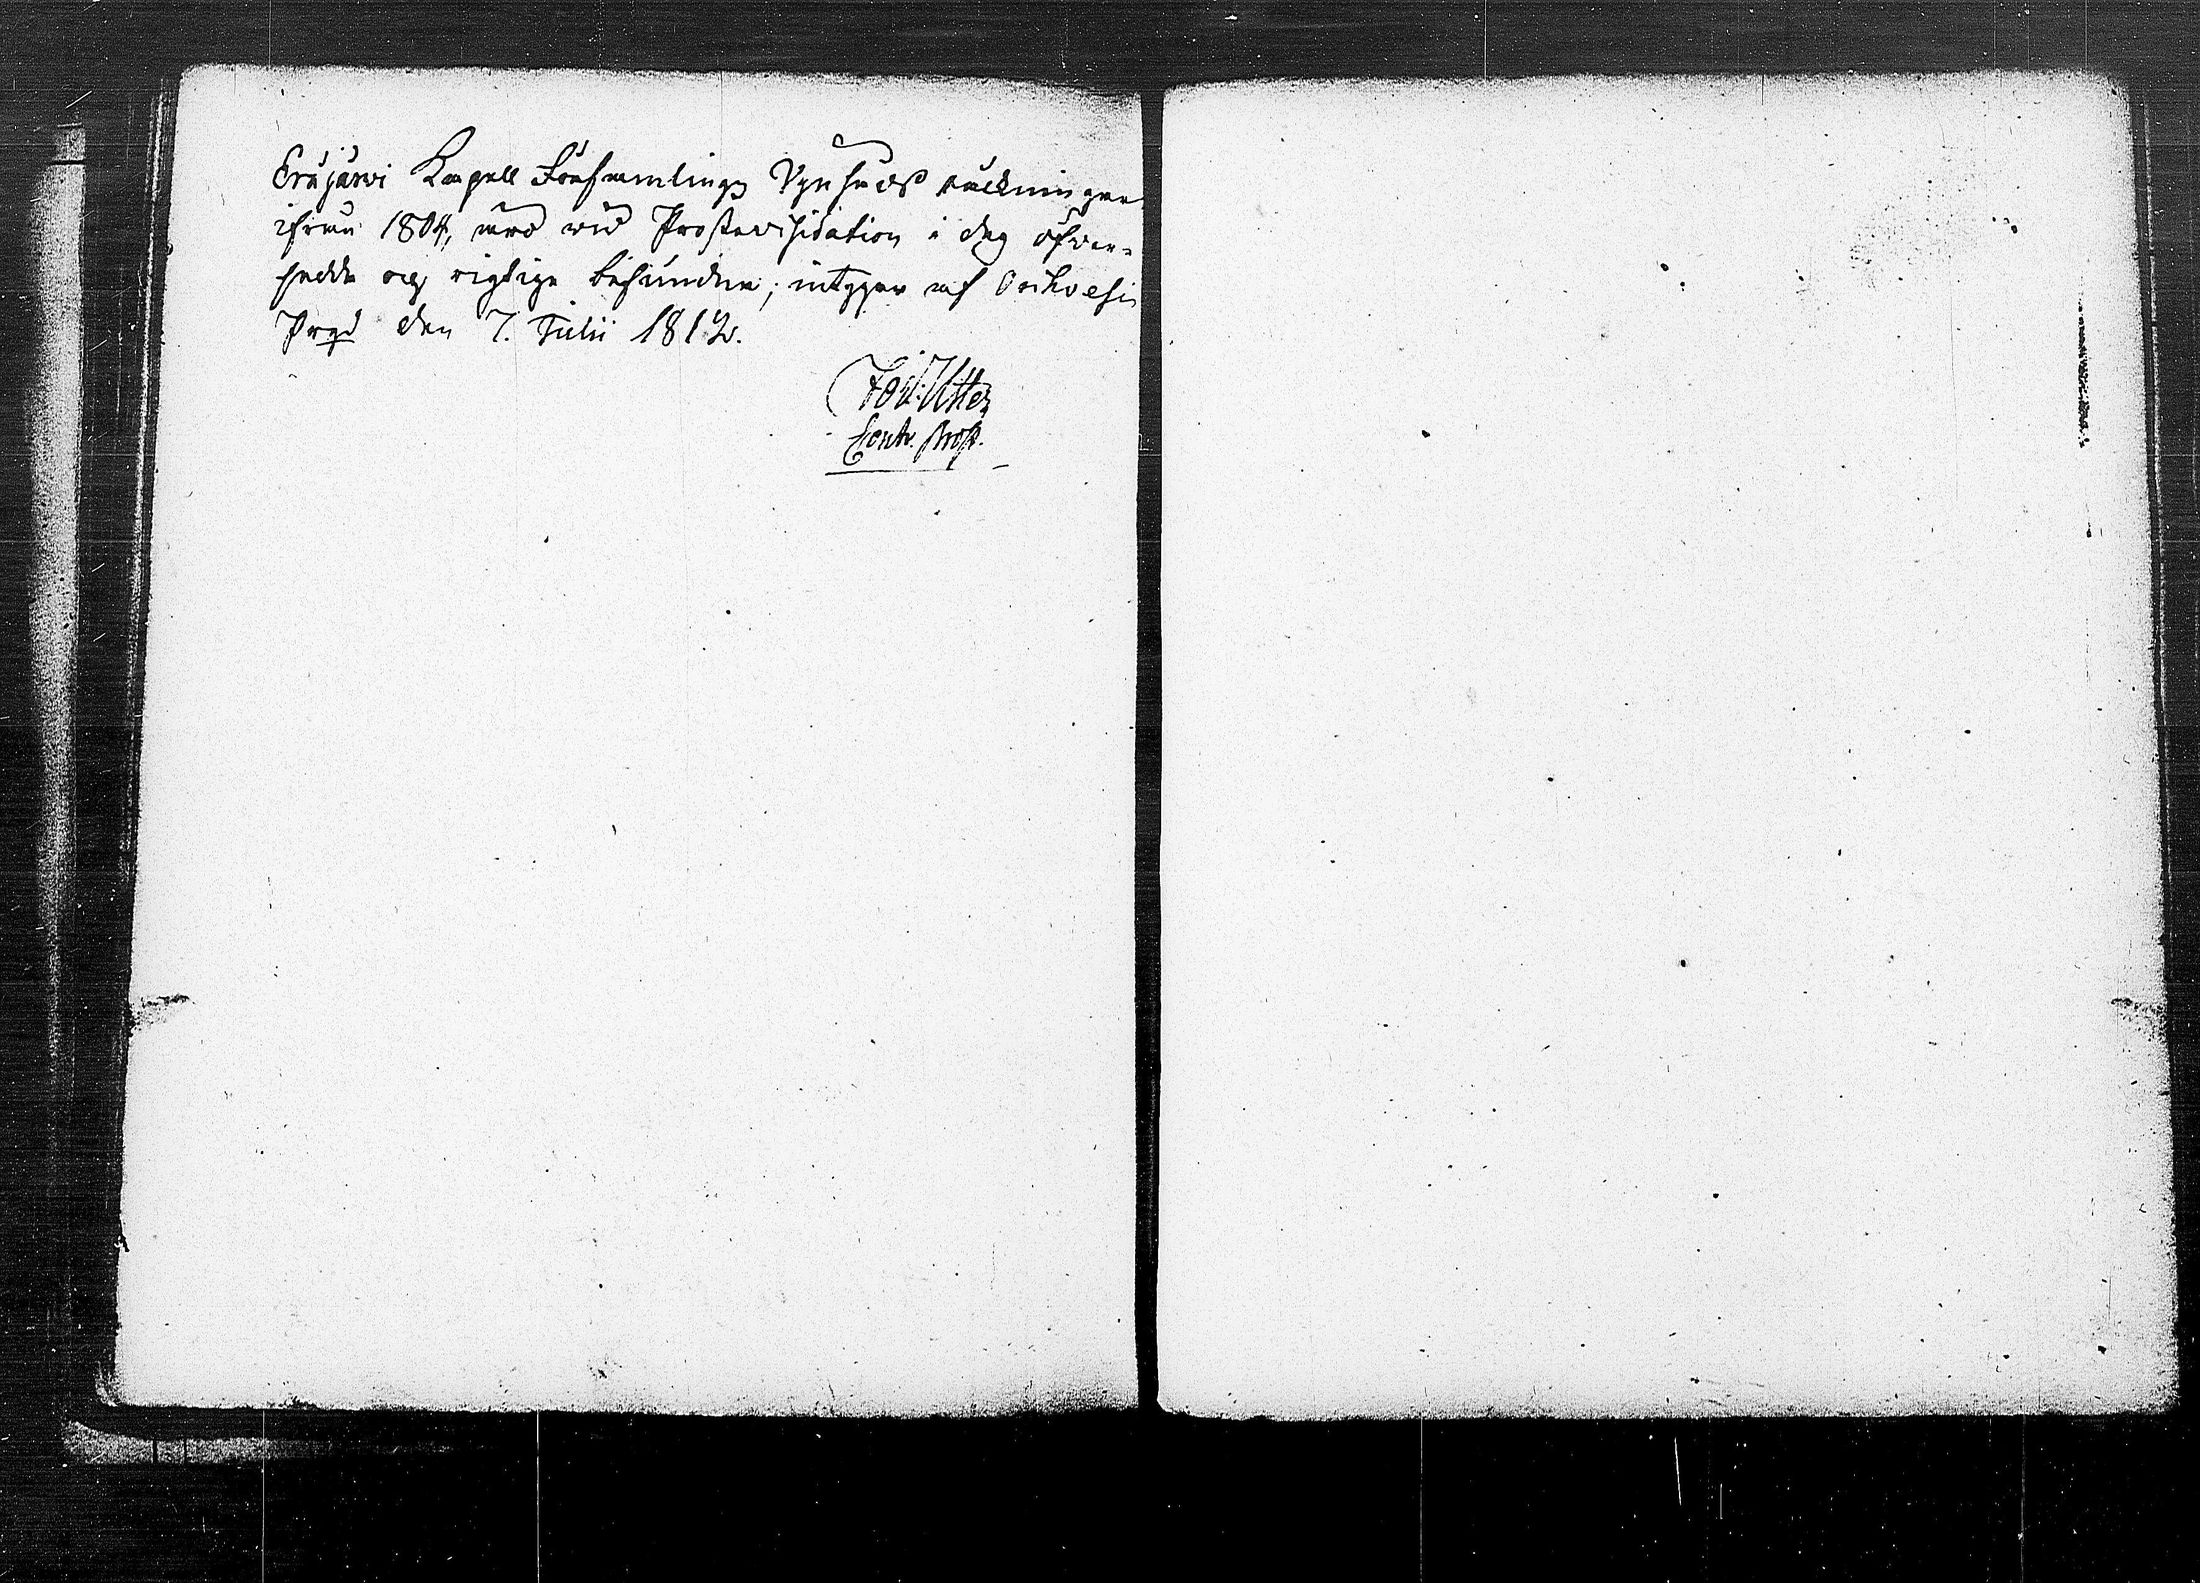 Eräjärvi Kapell Församlings Spanmåls räkningar
ifrån 1804, äro vid Prostevisitation i dag öfver-
sedde och riktige befundne; intygar af Orihvesi
Prgd den 7. Julii 1812.
Joh: Utter
Contr. Prost.